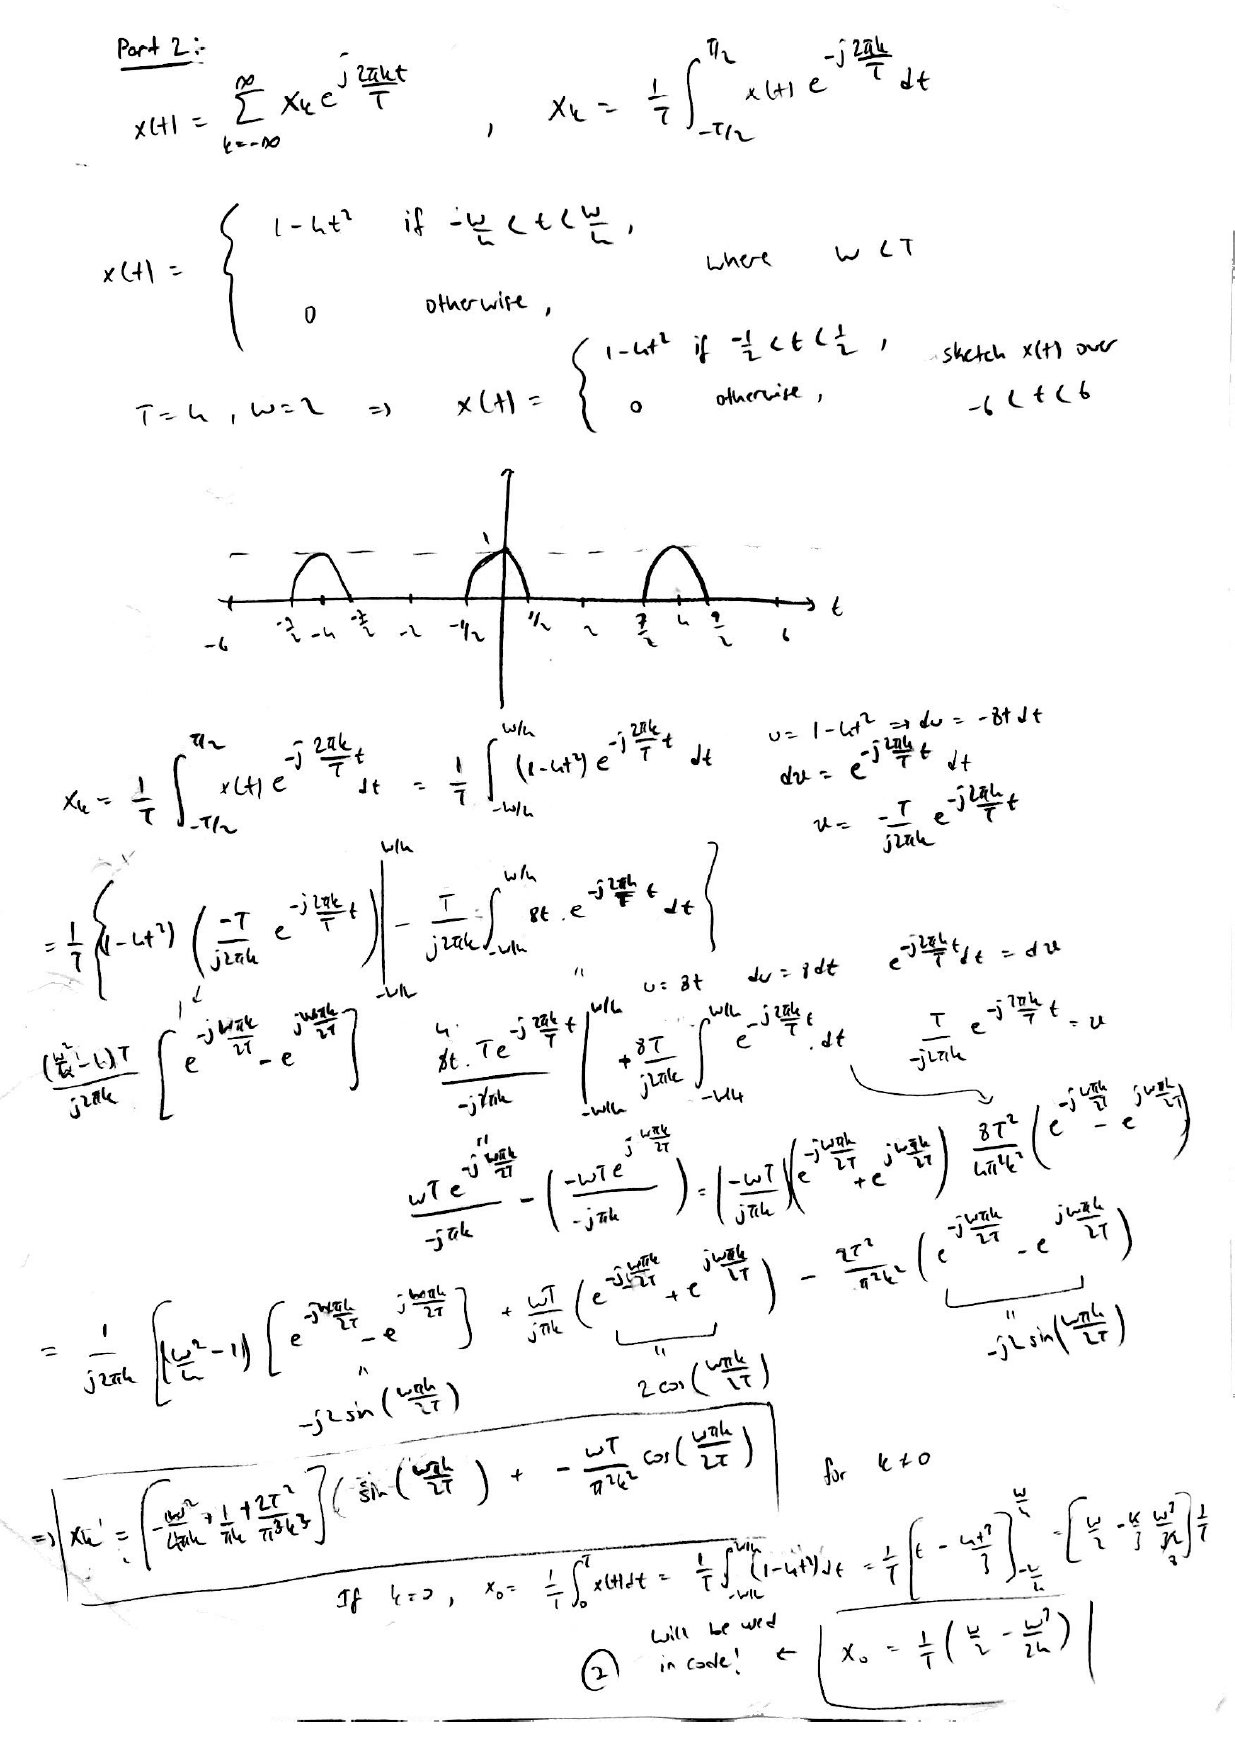 Part 2:-
x(t) = ∑_{k=-∞}^{∞} X_k e^{j 2πkt/T} , X_k = 1/T ∫_{-T/2}^{T/2} x(t) e^{-j 2πk/T} dt
x(t) = { 1-4t² if -W/4 < t < W/4 , where W < T
0 otherwise ,
T=4 , W=2 => x(t) = { 1-4t² if -1/2 < t < 1/2 , sketch x(t) over
0 otherwise , -6 < t < 6
1
-6 -9/2 -4 -7/2 -2 -1/2 1/2 2 7/2 4 9/2 6 t
X_k = 1/T ∫_{-T/2}^{T/2} x(t) e^{-j 2πk/T t} dt = 1/T ∫_{-W/4}^{W/4} (1-4t²) e^{-j 2πk/T t} dt
u = 1-4t² => du = -8t dt
dv = e^{-j 2πk/T t} dt
v = -T/j2πk e^{-j 2πk/T t}
= 1/T { (1-4t²) ( -T/j2πk e^{-j 2πk/T t} ) |_{-W/4}^{W/4} - T/j2πk ∫_{-W/4}^{W/4} 8t . e^{-j 2πk/T t} dt }
u = 8t du = 8dt e^{-j 2πk/T t} dt = dv
(W²/4 - 1)T / j2πk [ e^{-j Wπk/2T} - e^{j Wπk/2T} ] 4 8t . T e^{-j 2πk/T t} / -j2πk |_{-W/4}^{W/4} + 8T/j2πk ∫_{-W/4}^{W/4} e^{-j 2πk/T t} . dt T/-j2πk e^{-j 2πk/T t} = v
WT e^{-j Wπk/2T} / -jπk - ( -WT e^{j Wπk/2T} / -jπk ) = ( -WT/jπk ) ( e^{-j Wπk/2T} + e^{j Wπk/2T} ) 8T²/4π²k² ( e^{-j Wπk/2T} - e^{j Wπk/2T} )
= 1/j2πk [ (W²/4 - 1) [ e^{-j Wπk/2T} - e^{j Wπk/2T} ] + WT/jπk ( e^{-j Wπk/2T} + e^{j Wπk/2T} ) - 2T²/π²k² ( e^{-j Wπk/2T} - e^{j Wπk/2T} )
-j2 sin( Wπk/2T ) 2 cos( Wπk/2T ) -j2 sin( Wπk/2T )
=> X_k = [ -W²/4πk + 1/πk + 2T²/π³k³ ] ( sin( Wπk/2T ) + - WT/π²k² cos( Wπk/2T ) for k ≠ 0
If k=0 , X_0 = 1/T ∫_0^T x(t) dt = 1/T ∫_{-W/4}^{W/4} (1-4t²) dt = 1/T [ t - 4t³/3 ]_{-W/4}^{W/4} = [ W/2 - W³ ] 1/T
will be used
2 in code! ← X_0 = 1/T ( W/2 - W³/24 )